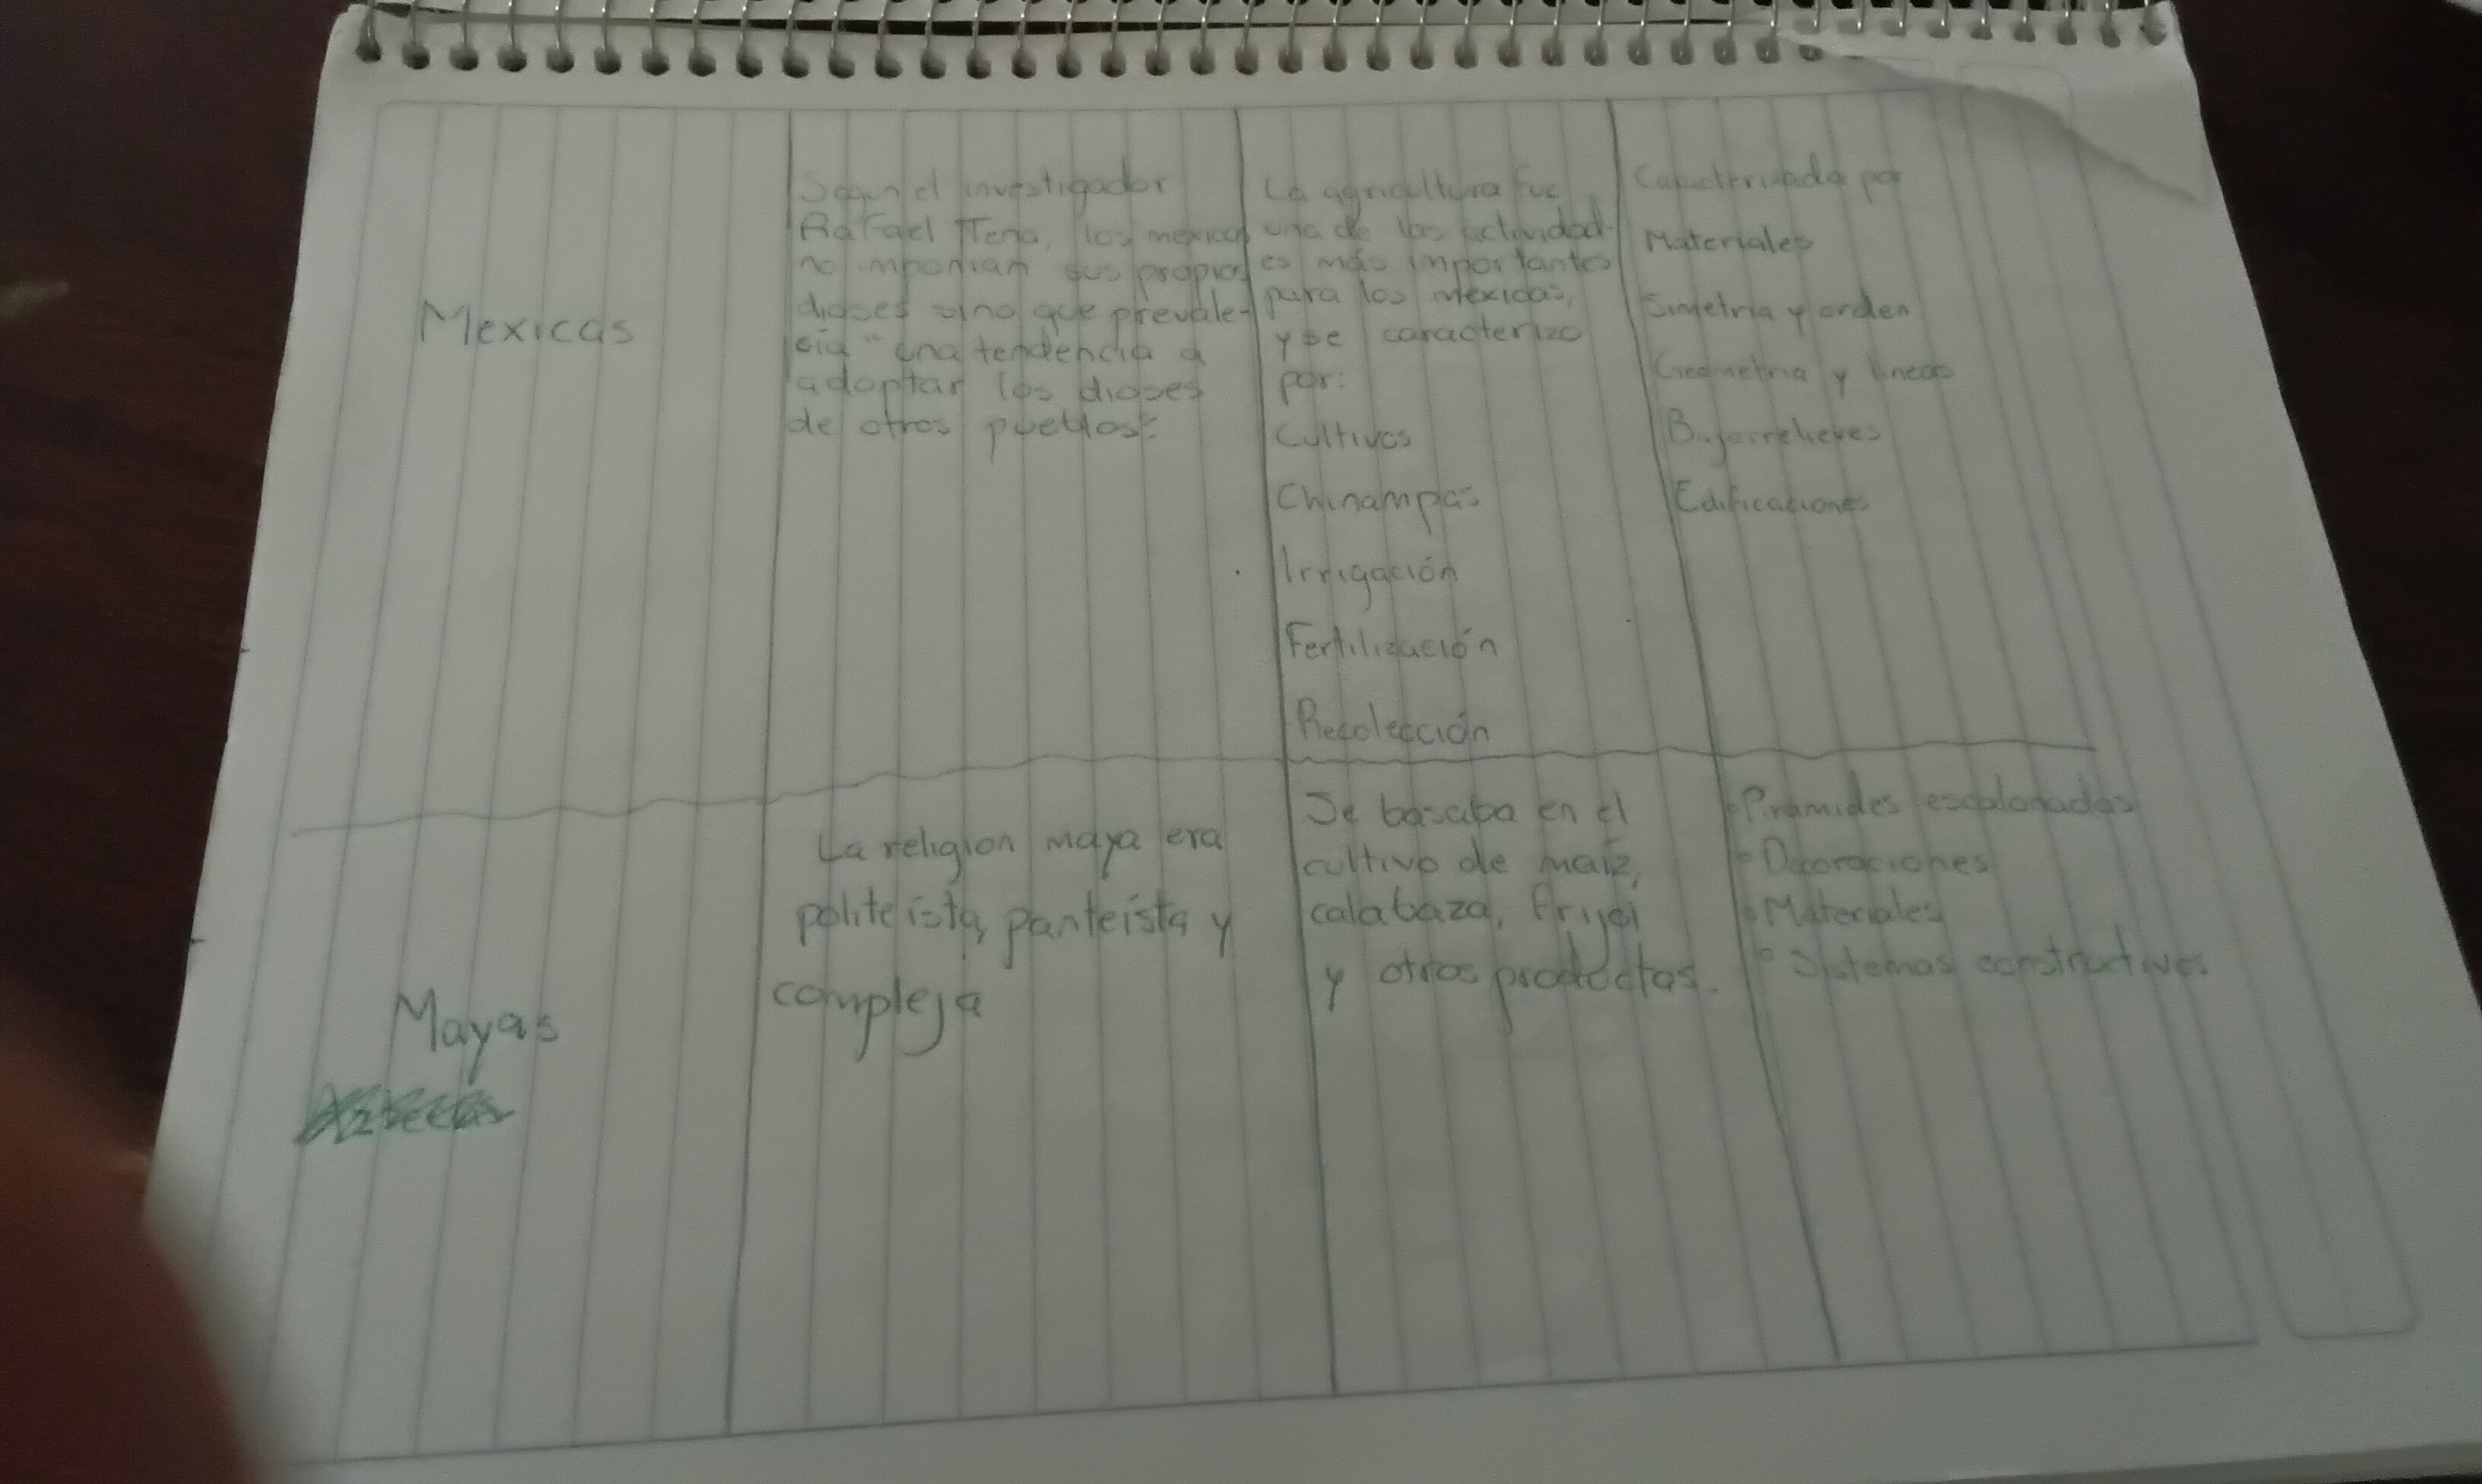 Mexicas
Segun el investigador
Rafael Tena, los mexicas
no imponian sus propios
dioses sino que prevale-
cia "una tendencia a
adoptar los dioses
de otros pueblos".
La agricultura fue
una de las actividad-
es más importantes
para los mexicas,
y se caracterizo
por:
Cultivos
Chinampas
Irrigación
Fertilización
Recolección
Caracterizada por
Materiales
Simetria y orden
Geometria y lineas
Bajorrelieves
Edificaciones
Mayas
Aztecas
La religion maya era
politeísta, panteísta y
compleja
Se basaba en el
cultivo de maíz,
calabaza, frijol
y otros productos.
• Piramides escalonadas
• Decoraciones
• Materiales
• Sistemas constructivos